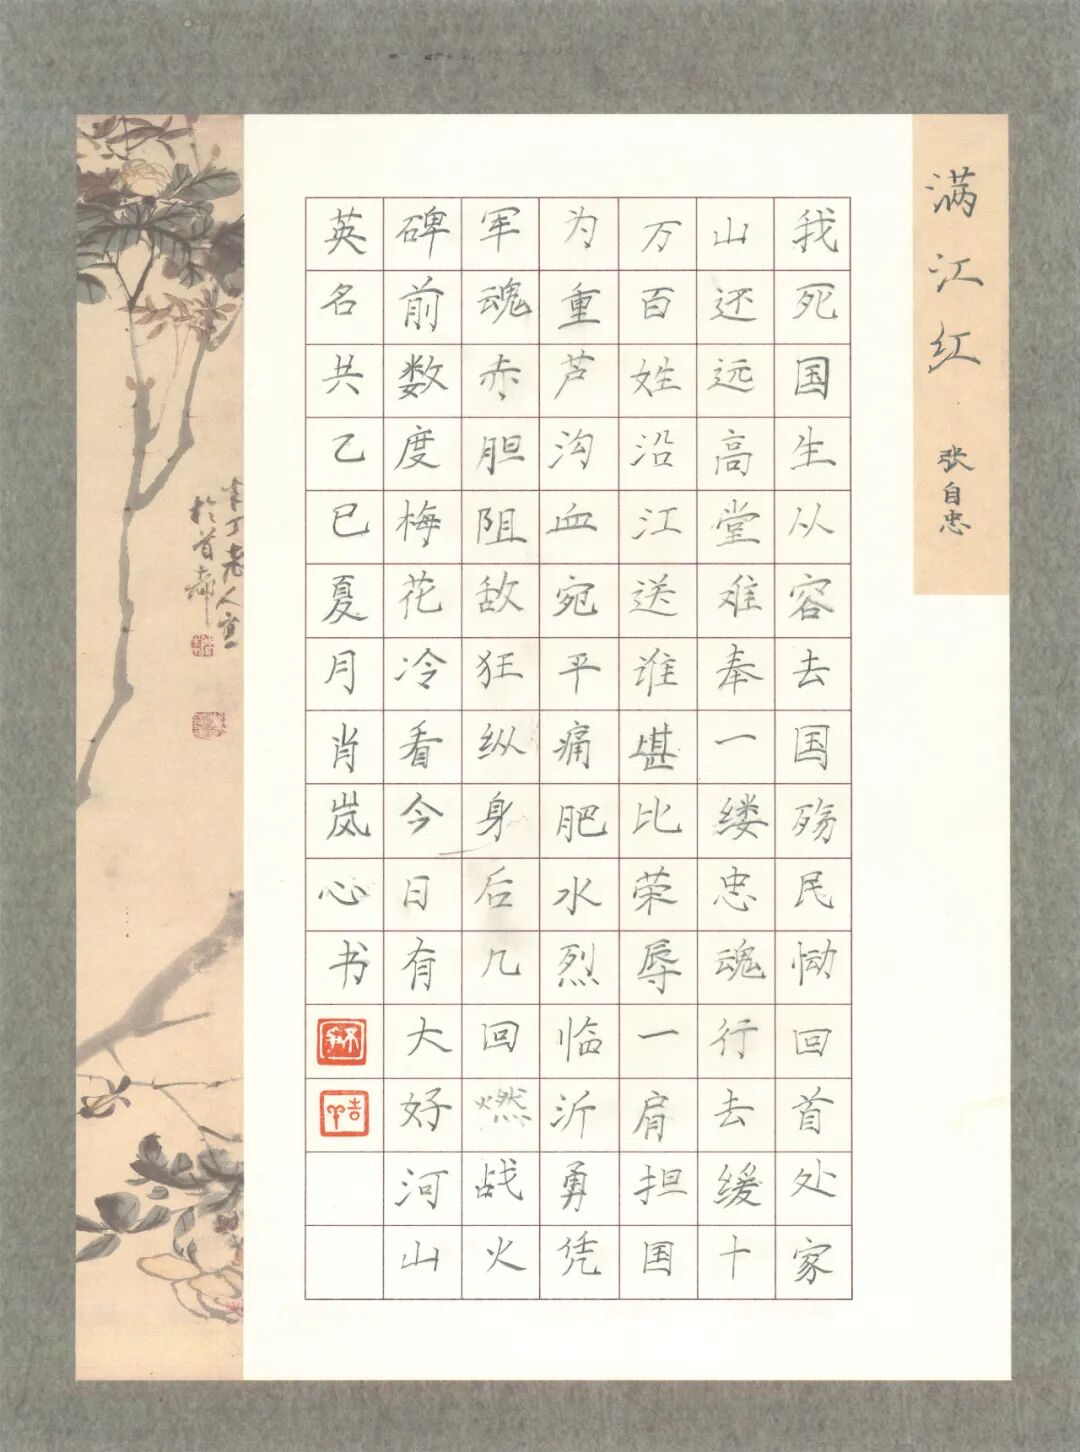 满江红 张自忠
我死国生从容去国殇民恸回首处家
山还远高堂难奉一缕忠魂行去缓十
万百姓沿江送谁堪比荣辱一肩担国
为重芦沟血宛平痛肥水烈临沂勇凭
军魂赤胆阻敌狂纵身后几回燃战火
碑前数度梅花冷看今日有大好河山
英名共乙巳夏月肖岚心书
半丁老人寫
於首都